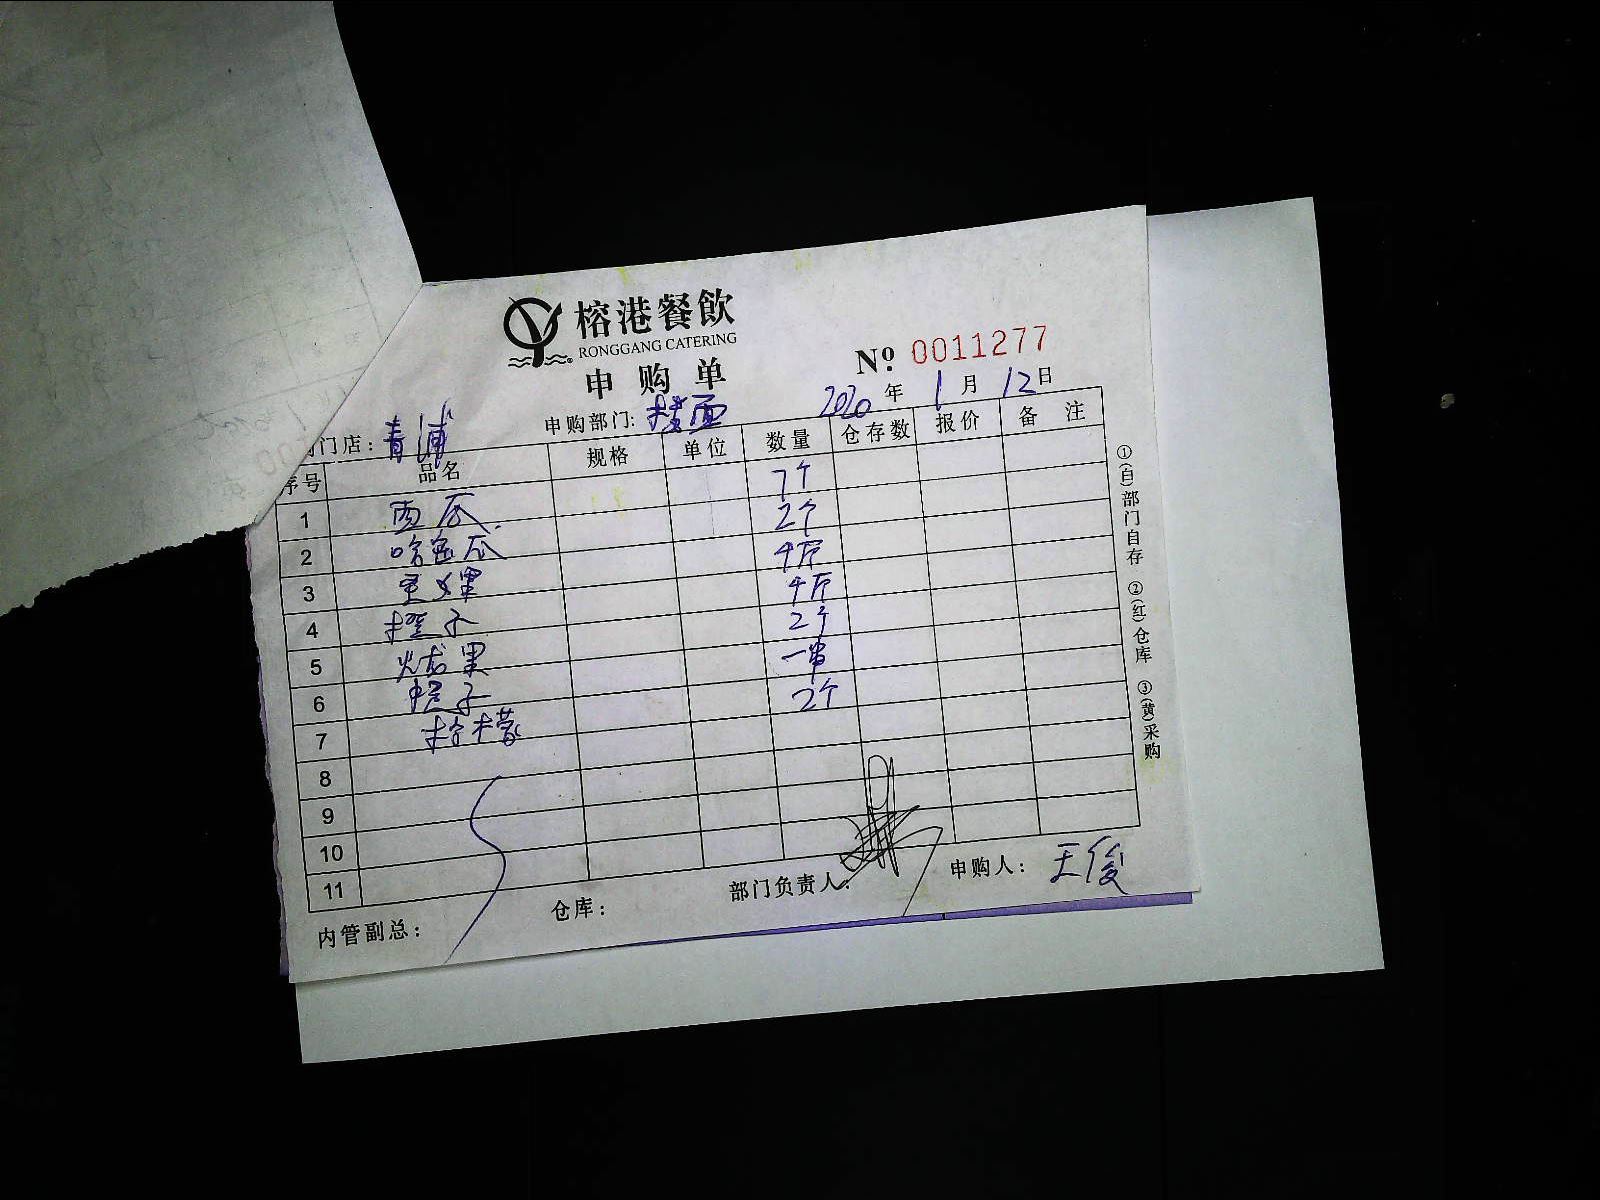 榕港餐飲
RONGGANG CATERING
申购单
№ 0011277
门店：青浦 申购部门：楼面 2020年1月12日
序号 品名 规格 单位 数量 仓存数 报价 备注
1 西瓜 7个
2 哈密瓜 2个
3 圣女果 4斤
4 橙子 4斤
5 火龙果 2个
6 提子 一串
7 柠檬 2个
8
9
10
11
内管副总： 仓库： 部门负责人： 申购人：王俊
①(白)部门自存 ②(红)仓库 ③(黄)采购